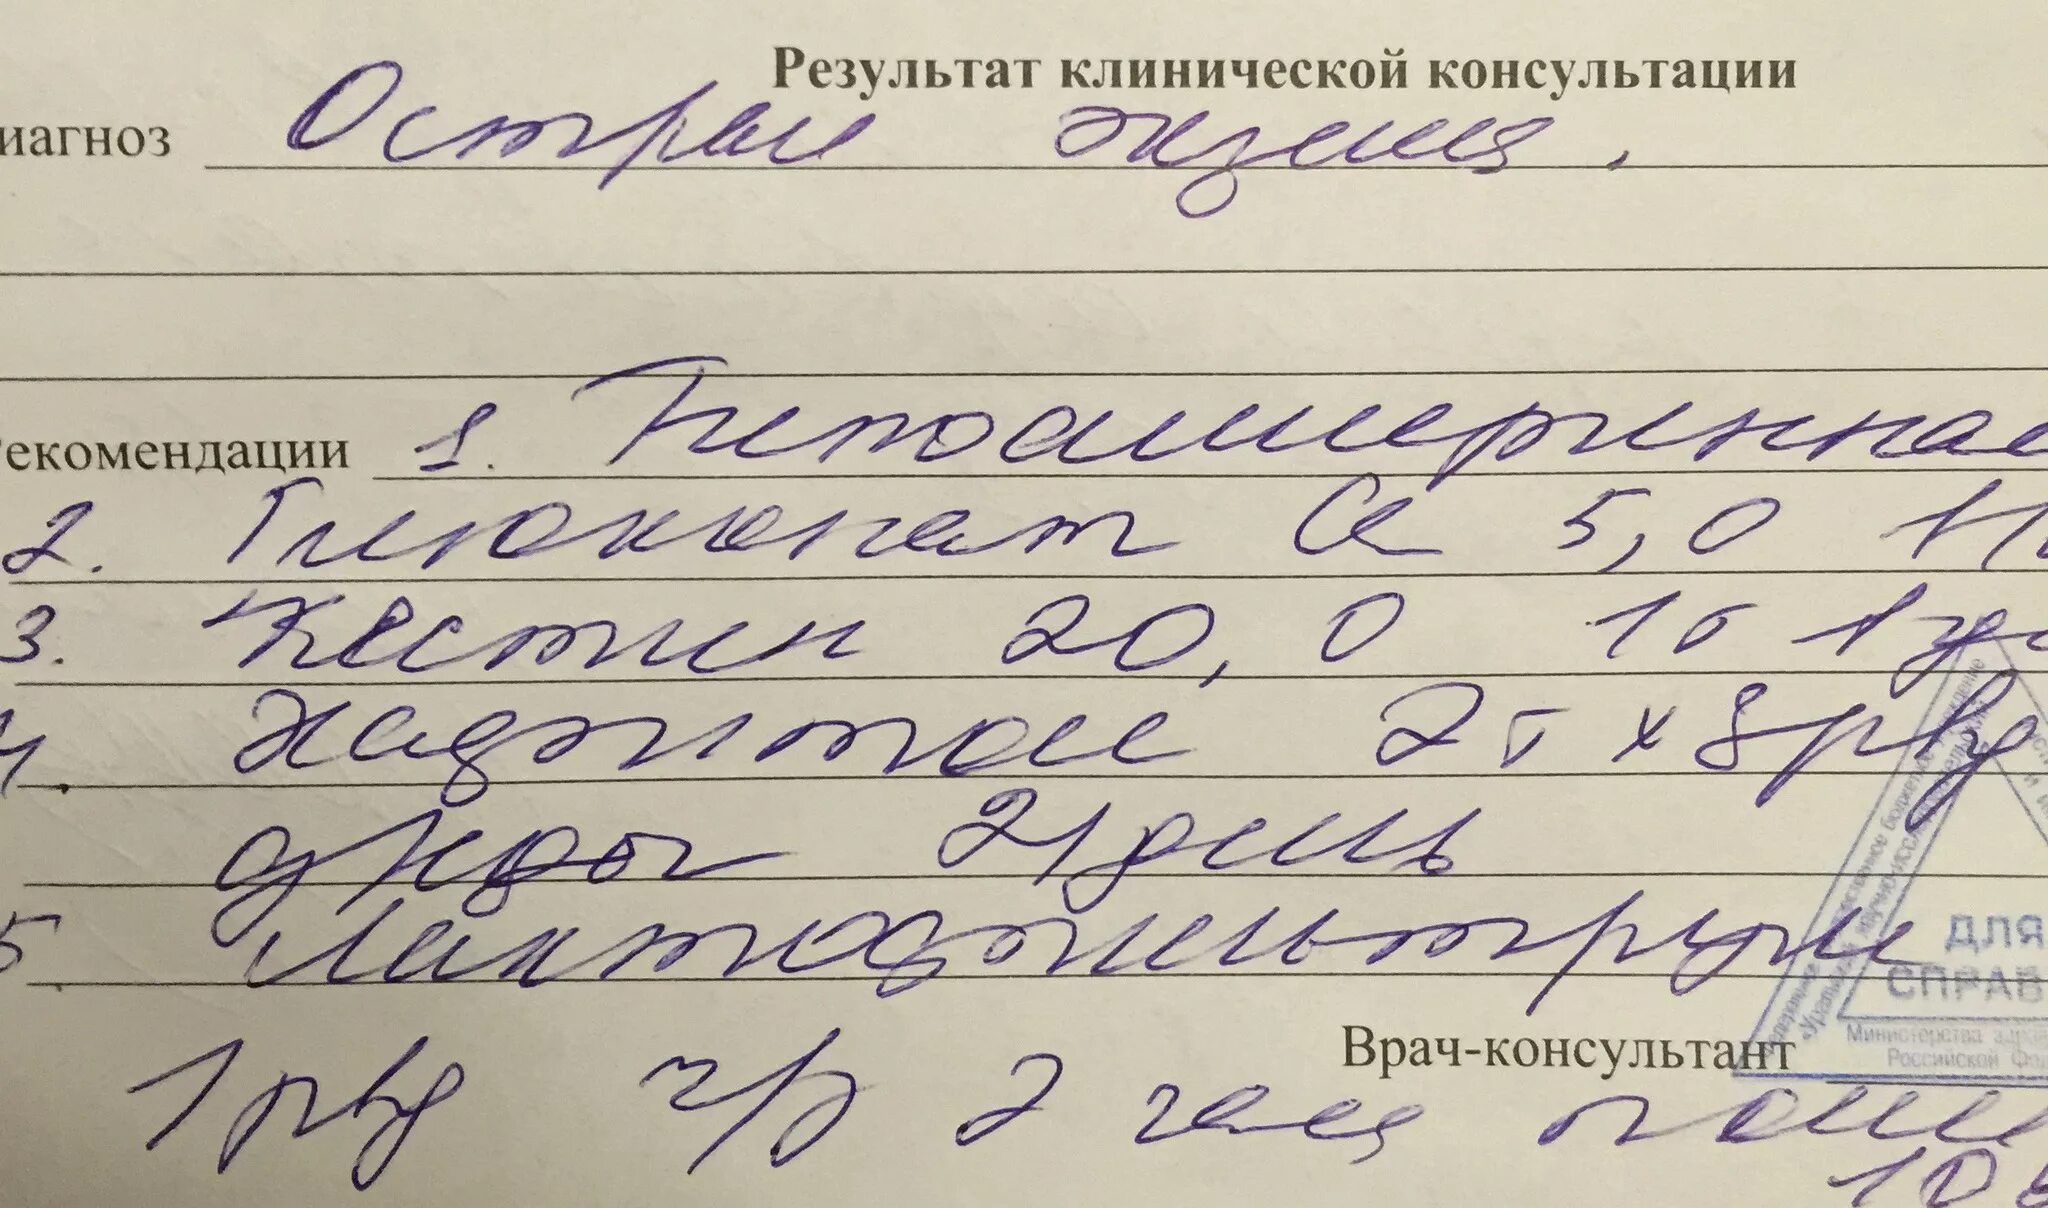 Результат клинической консультации
иагноз Острая экзема.
екомендации 1. Гипоаллергенная
2. Глюконат Ca 5,0
3. Кестин 20,0 1т 1
4. 2т х 3рвд
21 день
5. Лактофильтрум
1рвд ч/з 2 часа
Врач-консультант
ДЛЯ
СПРАВ
Министерства здрав
Российской Фе